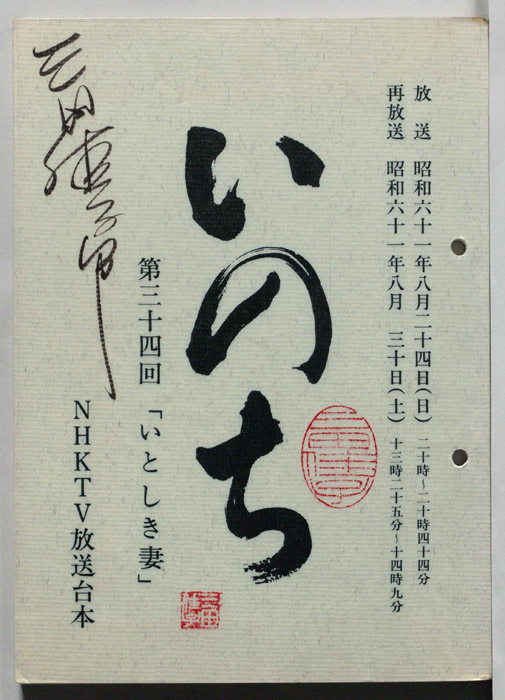 放送 昭和六十一年八月二十四日(日) 二十時〜二十時四十四分
再放送 昭和六十一年八月 三十日(土) 十三時二十五分〜十四時九分
いのち
第三十四回 「いとしき妻」
NHKTV放送台本